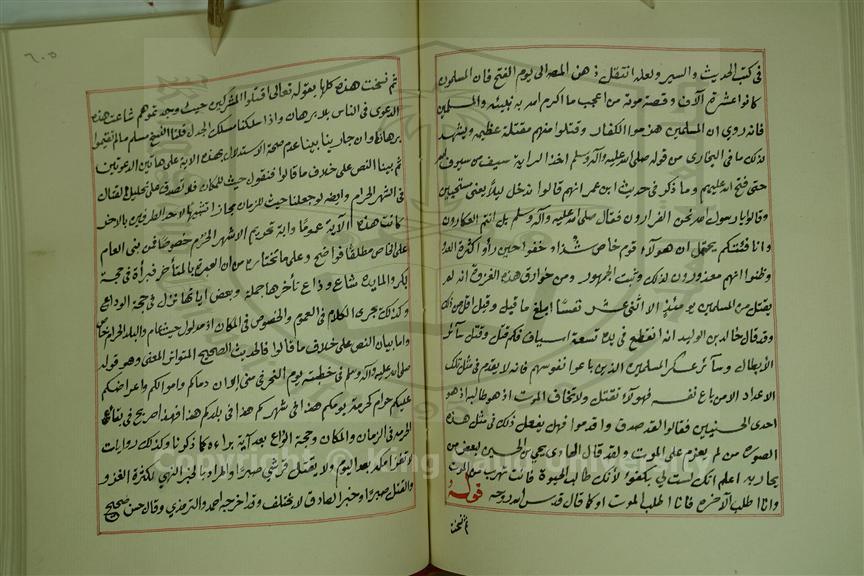 في كتب الحديث والسير ولعله انتقل ذهن المصـ الى يوم الفتح فان المسلمون
كانوا عشرة آلاف وقصة موتة من اعجب ما اكرم الله به نبيئه والمسلمين
فانه روي ان المسلمين هزموا الكفار وقتلوا منهم مقتلة عظيمة ويشهد
لذلك ما في البخاري من قوله صلى الله عليه وآله وسلم اخذ الراية سيف من سيوف الله
حتى فتح الله عليهم وما ذكر في حديث ابن عمر انهم قالوا ندخل ليلا يعني مستحيين
وقالوا يا رسول الله نحن الفرارون فقال صلى الله عليه وآله وسلم بل انتم العكارون
وانا فئتكم يحمل ان هولاء قوم خاص شذاذ خفوا حين رأوا كثرة العدو
وظنوا انهم معذورون لذلك وثبت الجمهور ومن خوارق هذه الغزوة انه لم
يقتل من المسلمين يومئذ الا اثني عشر نفسًا ابلغ ما قيل وقيل اقل من ذلك
وقد قال خالد بن الوليد انه انقطع في يده تسعة اسياف فكم قتل وقتل سائر
الأبطال وسائر عسكر المسلمين الذين باعوا نفوسهم فانه لا يقدم في مثل تلك
الاعداد الا من باع نفسه فهولاء نقتل ولا نخاف الموت اذ هو طالبه اذ هو
احدى الحسنيين فقالوا لقد صدق واقدموا فهل يفعل ذلك في مثل هذه
الصورة من لم يعزم على الموت ولقد قال الهادي يحيى بن الحسين لبعض من
يحاربه اعلم انك لست لي بكفؤ لأنك طالب الحيوة فانت تهرب من الموت
وانا اطلب الآخرة فانا اطلب الموت او كما قال قدس الله روحه قوله
ثم نسخت
٦٠٥
ثم نسخت هذه كلها بقوله تعالى اقتلوا المشركين حيث وجدتموهم شاعت هذه
الدعوى في الناس بلا برهان واذا سلكنا مسلك الجدل قلنا النسخ مسلم ما لم تقيموا
برهانكم وان جارينا بينا عدم صحة الاستدلال بهذه الآية على هاتين الدعوتين
ثم بينا النص على خلاف ما قالوا فنقول حيث للمكان فلم تصدق على تحليل القتال
في الشهر الحرام وايضا لو جعلنا حيث للزمان مجازا
كانت هذه الآية عمومًا وآية تحريم الاشهر الحرم خصوصًا فمن بنى العام
على الخاص مطلقًا فواضح وعلى ما نختاره من ان العبرة بالمتأخر فبرأة في حجة
بكر والمايدة شاع وذاع تأخرها جملة وبعض اياتها نزل في حجة الوداع
وكذلك يجري الكلام في العموم والخصوص في المكان اذ مدلول حيث عام والبلد الحرام خاص
واما بيان النص على خلاف ما قالوا فالحديث الصحيح المتواتر المعنى وهو قوله
صلى الله عليه وآله وسلم في خطبته يوم النحر في منى الا وان دماكم واموالكم واعراضكم
عليكم حرام كحرمة يومكم هذا في شهركم هذا في بلدكم هذا فهذا صريح في بقاء
الحرمة في الزمان والمكان وحجة الوداع بعد آية براءة كما ذكرنا وكذلك روايات
لا تغزا مكة بعد اليوم ولا يقتل قرشي صبرًا والمراد بالخبر النهي لكثرة الغزو
والقتل صبرًا وخبر الصادق لا يختلف وقد اخرجه احمد والترمذي وقال حسن صحيح
Copyright © King Saud University